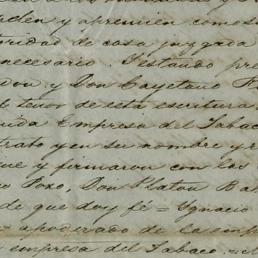 rden y apremien como s
toridad de cosa juzgada
necesario. Estando pre
don y Don Cayetano R
l tenor de esta escritura
ida Empresa del Tabac
trato y en su nombre y r
que y firmaron con los
Pozo, Don Platon Ba
de que doy fé = Ygnacio
apoderado de la em
empresa del Tabaco.